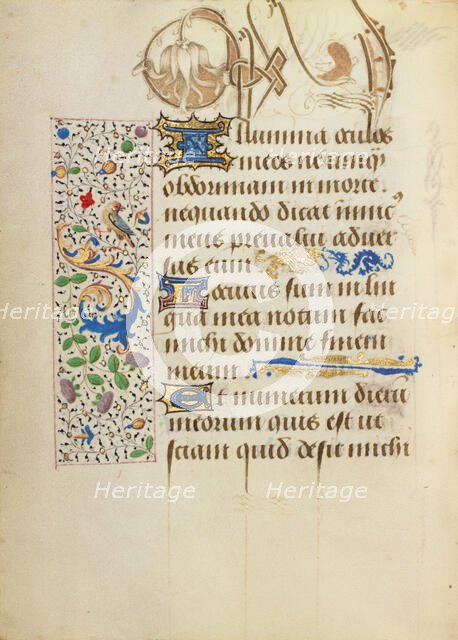 Illumina oculos
meos ne unq̃
obdormiam in morte.
nequando dicat inimicꝰ
meus prevalui adver
sus eum
Locutus sum in lin
gua mea notum fac
michi domine finem
meum.
Et numerum dierū
meorum quis est ut
sciam quid desit michi
Heritage
Heritage
Heritage
Heritage
Heritage
Heritage
Heritage